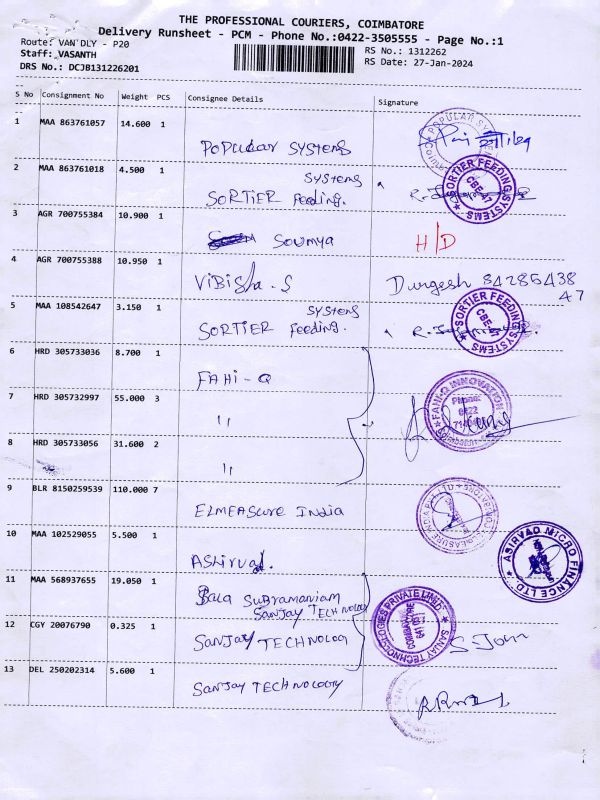 THE PROFESSIONAL COURIERS, COIMBATORE
Delivery Runsheet - PCM - Phone No.:0422-3505555 - Page No.:1
Route: VAN DLY - P20
RS No.: 1312262
Staff: VASANTH
RS Date: 27-Jan-2024
DRS No.: DCJB131226201
S No Consignment No Weight PCS Consignee Details Signature
1 MAA 863761057 14.600 1 POPULAR SYSTEMS
2 MAA 863761018 4.500 1 SORTIER Feeding. SYSTEMS SORTIER FEEDING SYSTEMS CBE-47
3 AGR 700755384 10.900 1 Soumya H/D
4 AGR 700755388 10.950 1 ViBisha.S Durgesh 84285438 47
5 MAA 108542647 3.150 1 SORTIER Feeding. SYSTEMS SORTIER FEEDING SYSTEMS CBE-47
6 HRD 305733036 8.700 1 FAHi-Q
7 HRD 305732997 55.000 3 " FAHI-Q INNOVATION Phone: 0422
8 HRD 305733056 31.600 2 "
9 BLR 8150259539 110.000 7 ELMEASURE INDIA
10 MAA 102529055 5.500 1 ASHirvad. ASIRVAD MICRO FINANCE LTD
11 MAA 568937655 19.050 1 Bala Subramaniam SANJAY TECHNOLOGY
12 CGY 20076790 0.325 1 SANJAY TECHNOLOGY SANJAY TECHNOLOGIES PRIVATE LIMITED COIMBATORE S.Jom
13 DEL 250202314 5.600 1 SANJAY TECHNOLOGY